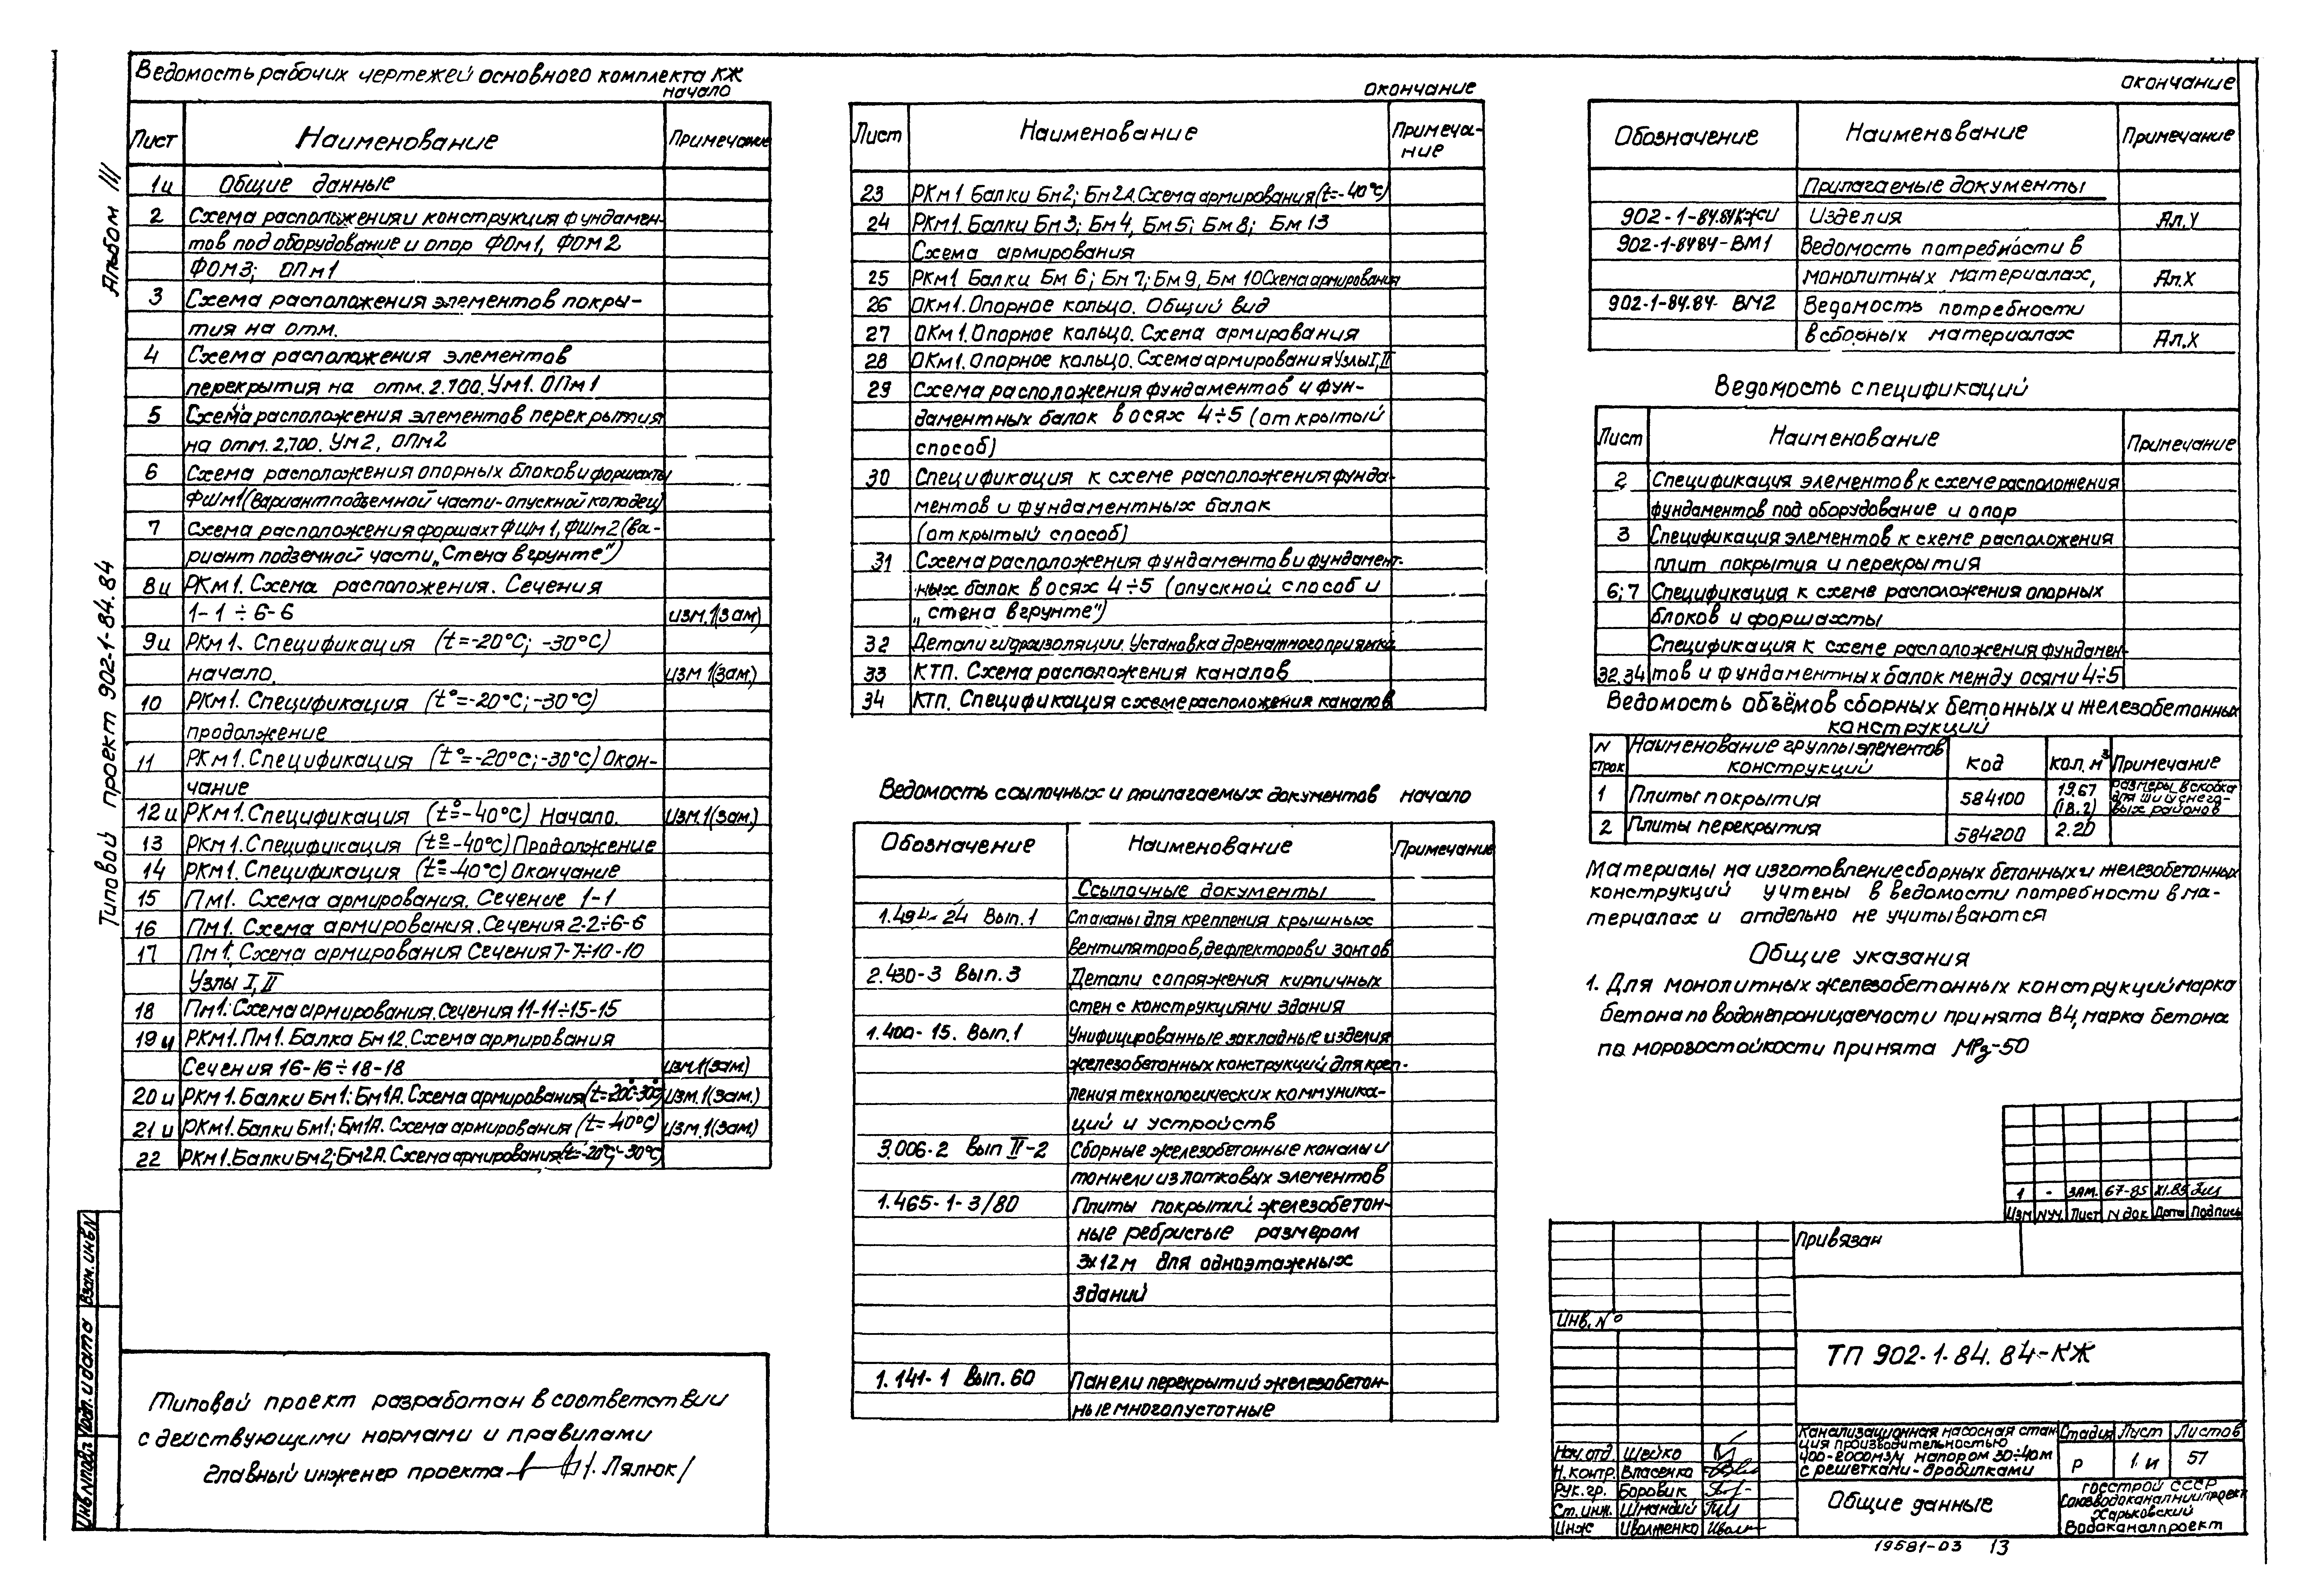 Альбом III
Типовой проект 902-1-84.84
Ведомость рабочих чертежей основного комплекта КЖ
начало
Лист Наименование Примечание
1и Общие данные
2 Схема расположения и конструкция фундамен-
тов под оборудование и опор ФОм1, ФОМ2
ФОМ3; ОПм1
3 Схема расположения элементов покры-
тия на отм.
4 Схема расположения элементов
перекрытия на отм. 2.700. Ум1. ОПм1
5 Схема расположения элементов перекрытия
на отм. 2,700. Ум2, ОПм2
6 Схема расположения опорных блоков и форшахты
ФШм1 (Вариант подземной части-опускной колодец)
7 Схема расположения форшахт ФШм1, ФШм2 (ва-
риант подземной части „Стена в грунте")
8и РКм1. Схема расположения. Сечения
1-1 ÷ 6-6 изм.1(зам)
9и РКм1. Спецификация (t=-20°С; -30°С)
начало. изм 1(зам.)
10 РКм1. Спецификация (t°=-20°С; -30°С)
продолжение
11 РКм1. Спецификация (t°=-20°С; -30°С) Окон-
чание
12и РКм1. Спецификация (t°=-40°С) Начало. изм.1(зам.)
13 РКм1. Спецификация (t°=-40°С) Продолжение
14 РКм1. Спецификация (t°=-40°С) Окончание
15 Пм1. Схема армирования. Сечение 1-1
16 Пм1. Схема армирования. Сечения 2-2÷6-6
17 Пм1. Схема армирования Сечения 7-7÷10-10
Узлы I, II
18 Пм1. Схема армирования. Сечения 11-11÷15-15
19и РКм1. Пм1. Балка Бм12. Схема армирования
Сечения 16-16÷18-18 изм.1(зам)
20и РКм1. Балки Бм1; Бм1А. Схема армирования (t=-20°С-30°С) изм.1(зам.)
21и РКм1. Балки Бм1; Бм1А. Схема армирования (t=-40°С) изм.1(зам)
22 РКм1. Балки Бм2; Бм2А. Схема армирования (t=-20°С;-30°С)
Типовой проект разработан в соответствии
с действующими нормами и правилами
Главный инженер проекта /. Лялюк/
Инв.N подл Подп. и дата Взам. инв N
окончание
Лист Наименование Примеча-
ние
23 РКм1 Балки Бм2; Бм2А. Схема армирования (t=-40°С)
24 РКм1. Балки Бм3; Бм4, Бм5; Бм8; Бм13
Схема армирования
25 РКм1 Балки Бм6; Бм7; Бм9, Бм10 Схема армирования
26 ОКм1. Опорное кольцо. Общий вид
27 ОКм1. Опорное кольцо. Схема армирования
28 ОКм1. Опорное кольцо. Схема армирования Узлы I, II
29 Схема расположения фундаментов и фун-
даментных балок в осях 4÷5 (открытый
способ)
30 Спецификация к схеме расположения фунда-
ментов и фундаментных балок
(открытый способ)
31 Схема расположения фундаментов и фундамент-
ных балок в осях 4÷5 (опускной способ и
„стена в грунте")
32 Детали гидроизоляции. Установка дренажного приямка
33 КТП. Схема расположения каналов
34 КТП. Спецификация с схеме расположения каналов
Ведомость ссылочных и прилагаемых документов начало
Обозначение Наименование Примечание
Ссылочные документы
1.494-24 Вып.1 Стаканы для крепления крышных
вентиляторов, дефлекторов и зонтов
2.430-3 Вып. 3 Детали сопряжения кирпичных
стен с конструкциями здания
1.400-15. Вып.1 Унифицированные закладные изделия
железобетонных конструкций для креп-
ления технологических коммуника-
ций и устройств
3.006-2 Вып II-2 Сборные железобетонные каналы и
тоннели из лотковых элементов
1.465-1-3/80 Плиты покрытий железобетон-
ные ребристые размером
3х12м для одноэтажных
зданий
1.141-1 Вып. 60 Панели перекрытий железобетон-
ные многопустотные
окончание
Обозначение Наименование Примечание
Прилагаемые документы
902-1-84.84КЖИ Изделия Ал. V
902-1-84.84-ВМ1 Ведомость потребности в
монолитных материалах, Ал.X
902-1-84.84- ВМ2 Ведомость потребности
в сборных материалах Ал.X
Ведомость спецификаций
Лист Наименование Примечание
2 Спецификация элементов к схеме расположения
фундаментов под оборудование и опор
3 Спецификация элементов к схеме расположения
плит покрытия и перекрытия
6; 7 Спецификация к схеме расположения опорных
блоков и форшахты
Спецификация к схеме расположения фундамен-
32.34 тов и фундаментных балок между осями 4÷5
Ведомость объёмов сборных бетонных и железобетонных
конструкций
N строк Наименование группы элементов конструкций Код Кол. м³ Примечание
1 Плиты покрытия 584100 19.67 (18.2) Размеры в скобках для II и III снего- вых районов
2 Плиты перекрытия 584200 2.20
Материалы на изготовление сборных бетонных и железобетонных
конструкций учтены в ведомости потребности в ма-
териалах и отдельно не учитываются
Общие указания
1. Для монолитных железобетонных конструкций марка
бетона по водонепроницаемости принята В4, марка бетона
по морозостойкости принята МРз-50
1 - зам. 67-85 XI.85
Изм N уч. Лист N док. Дата Подпись
Привязан
Инв. N°
ТП 902-1-84.84-КЖ
Нач. отд. Шейко
Н. контр. Власенко
Рук. гр. Боровик
Ст. инж. Шмандий
Инж Иволженко
Канализационная насосная стан-
ция производительностью
400-2000м3/ч напором 30÷40м
с решетками-дробилками
Стадия Лист Листов
Р 1.и 57
Общие данные
Госстрой СССР
Союзводоканалниипроект
Харьковский
Водоканалпроект
19581-03 13